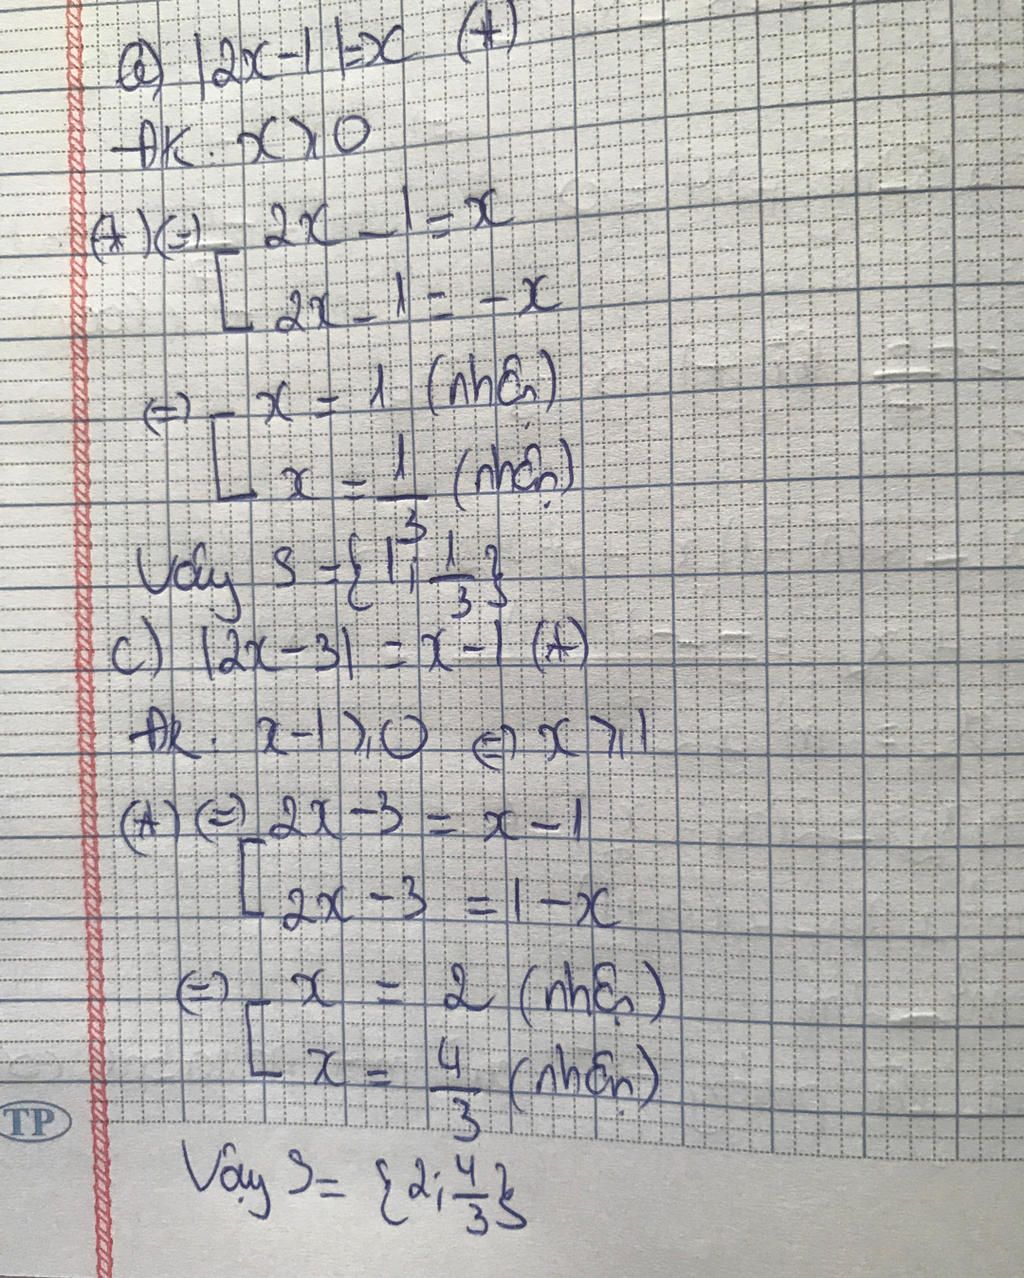 a) |2x-1|=x (*)
ĐK: x ≥ 0
(*) (=) [ 2x - 1 = x
2x - 1 = - x
(=) [ x = 1 (nhận)
x = 1/3 (nhận)
Vậy S = {1; 1/3}
c) |2x-3| = x-1 (*)
ĐK: x-1 ≥ 0 (=) x ≥ 1
(*) (=) [ 2x - 3 = x - 1
2x - 3 = 1 - x
(=) [ x = 2 (nhận)
x = 4/3 (nhận)
TP
Vậy S = {2; 4/3}